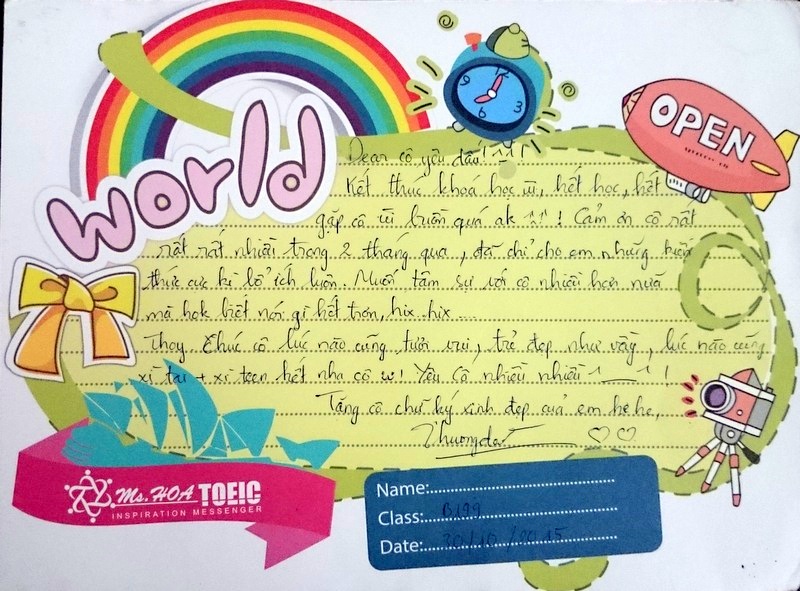 world
OPEN
9 3 6
Dear cô yêu dấu! ^^!
Kết thúc khoá học ùi, hết học, hết
gặp cô ùi buồn quá ak ! Cảm ơn cô rất
rất rất nhiều trong 2 tháng qua, đã chỉ cho em những kiến
thức cực kì bổ ích luôn. Muốn tâm sự với cô nhiều hơn nữa
mà hok biết nói gì hết trơn, hix hix...
Thoy chúc cô lúc nào cũng tươi vui, trẻ đẹp như vậy, lúc nào cũng
xì tai + xì teen hết nha cô ơi! Yêu Cô nhiều nhiều ^__^!
Tặng cô chữ ký xinh đẹp của em hehe,
♡ ♡
Ms. HOA TOEIC
INSPIRATION MESSENGER
Name:
Class: B199
Date: 30/10/2015